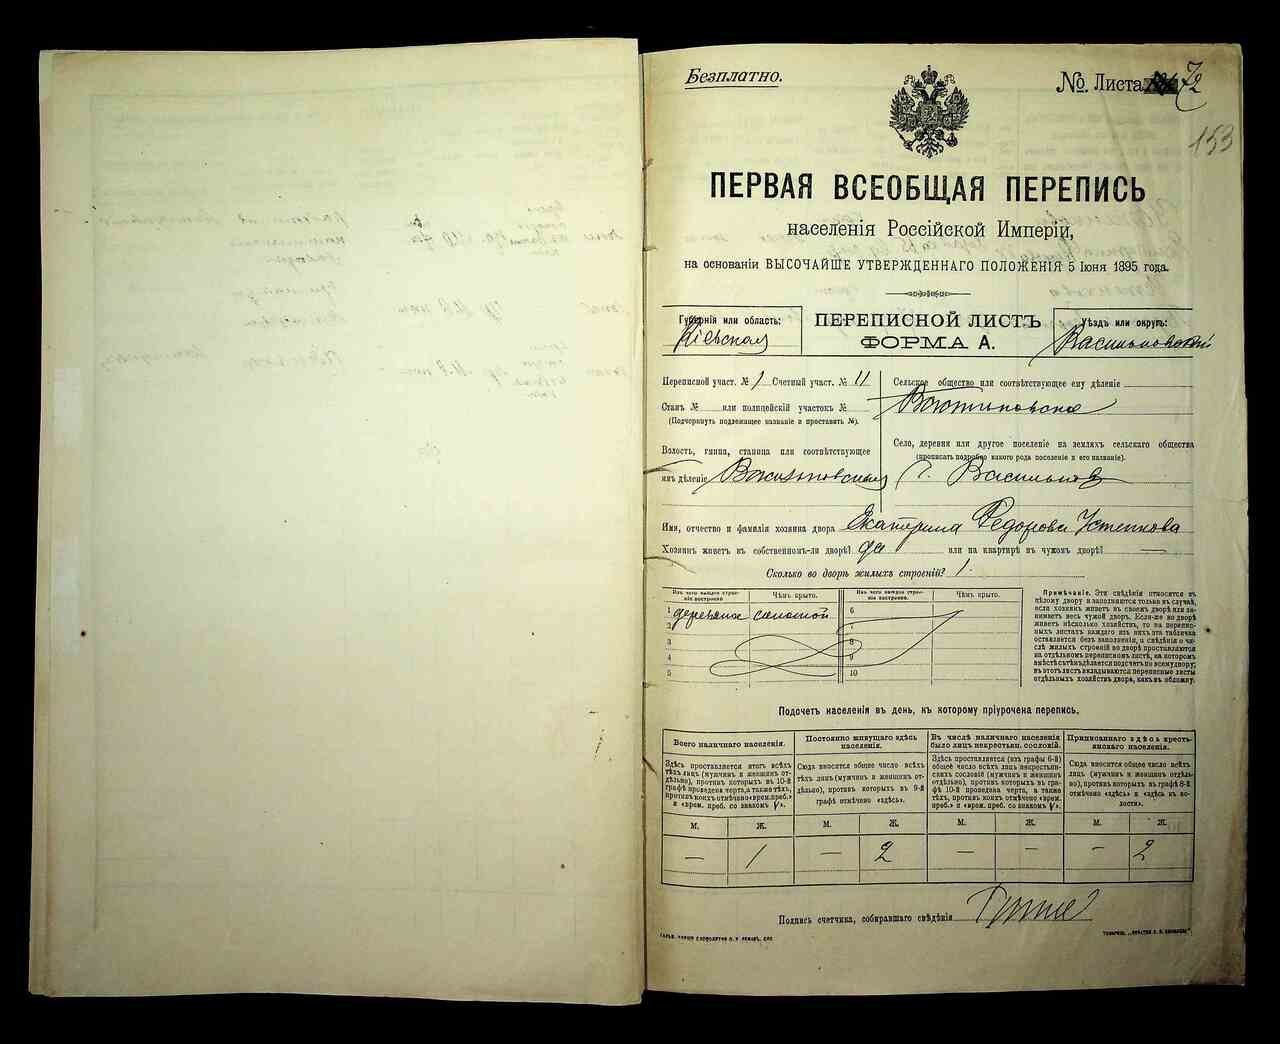 Безплатно.
№ Листа 72
153
ПЕРВАЯ ВСЕОБЩАЯ ПЕРЕПИСЬ
населенія Россійской Имперіи,
на основаніи ВЫСОЧАЙШЕ УТВЕРЖДЕННАГО ПОЛОЖЕНІЯ 5 Іюня 1895 года.
Губернія или область:
Кіевская
ПЕРЕПИСНОЙ ЛИСТЪ
ФОРМА А.
Уѣздъ или округъ:
Васильковскій
Переписной участ. № 1 Счетный участ. № 11
Станъ № или полицейскій участокъ №
(Подчеркнуть подлежащее названіе и проставить №).
Волость, гмина, станица или соотвѣтствующее
имъ дѣленіе Васильковская
Сельское общество или соотвѣтствующее ему дѣленіе
Село, деревня или другое поселеніе на земляхъ сельскаго общества
(прописать подробно какого рода поселеніе и его названіе).
г. Васильков
Имя, отчество и фамилія хозяина двора Екатерина Федорова Устенкова
Хозяинъ живетъ въ собственномъ-ли дворѣ? да или на квартирѣ въ чужомъ дворѣ? —
Сколько во дворѣ жилыхъ строеній? 1.
Изъ чего каждое строеніе построено.
Чѣмъ крыто.
Изъ чего каждое строеніе построено.
Чѣмъ крыто.
1 деревянное соломой 6
2 7
3 8
4 9
5 10
Примѣчаніе. Эти свѣдѣнія относятся къ
цѣлому двору и заполняются только въ случаѣ,
если хозяинъ живетъ въ своемъ дворѣ или занимаетъ
весь чужой дворъ. Если-же во дворѣ
живетъ нѣсколько хозяйствъ, то на переписныхъ
листахъ каждаго изъ нихъ эта табличка
оставляется безъ заполненія, а свѣдѣнія о числѣ
жилыхъ строеній во дворѣ проставляются
на отдѣльномъ переписномъ листѣ, на которомъ
вмѣстѣ съ тѣмъ дѣлается подсчетъ по всему двору;
въ этотъ листъ вкладываются переписные листы
отдѣльныхъ хозяйствъ двора, какъ въ обложку.
Подсчетъ населенія въ день, къ которому пріурочена перепись.
Всего наличнаго населенія.
Постоянно живущаго здѣсь
населенія.
Въ числѣ наличнаго населенія
было лицъ некрестьян. сословій.
Приписаннаго здѣсь крестьянскаго
населенія.
Здѣсь проставляется итогъ всѣхъ
тѣхъ лицъ (мужчинъ и женщинъ отдѣльно),
противъ которыхъ въ 10-й
графѣ проведена черта, а также тѣхъ,
противъ коихъ отмѣчено «врем. преб.»
и «врем. преб. со знакомъ V».
Сюда вносится общее число всѣхъ
тѣхъ лицъ (мужчинъ и женщинъ отдѣльно),
противъ которыхъ въ 9-й
графѣ отмѣчено «здѣсь».
Здѣсь проставляется (изъ графы 6-й)
общее число всѣхъ некрестьянскихъ
сословій (мужчинъ и женщинъ
отдѣльно), противъ которыхъ въ графѣ
10-й проведена черта, а также
тѣхъ, противъ коихъ отмѣчено «врем.
преб.» и «врем. преб. со знакомъ V».
Сюда вносится общее число всѣхъ
лицъ (мужчинъ и женщинъ отдѣльно),
противъ которыхъ въ графѣ 8-й
отмѣчено «здѣсь» и «здѣсь къ волости».
М. Ж. М. Ж. М. Ж. М. Ж.
— 1 — 2 — — — 2
Подпись счетчика, собиравшаго свѣдѣнія